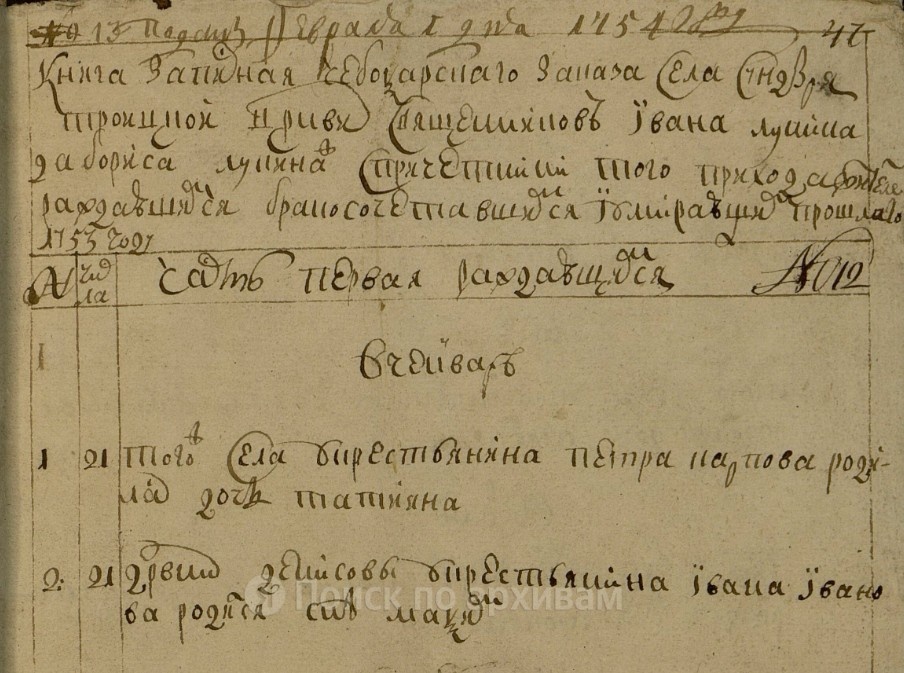 № 13 Подана Февраля 1 дня 1754 году 47
Книга записная чебоксарского заказа села Сундыря
троицкой церкви священниковъ Iвана лукина
да бориса лукина с причетники того прихода
раждавшихся бракосочетавшихся i умиравшихъ прошлаго
1753 году
№ числа часть первая раждавшихся №12
1
В генваръ
1 21 того села у крестьянина петра карпова роди-
лась дочь татияна
2: 21 дрвни денисовы у крестьянина Iвана Iвано
ва родился снъ
Поиск по архивам